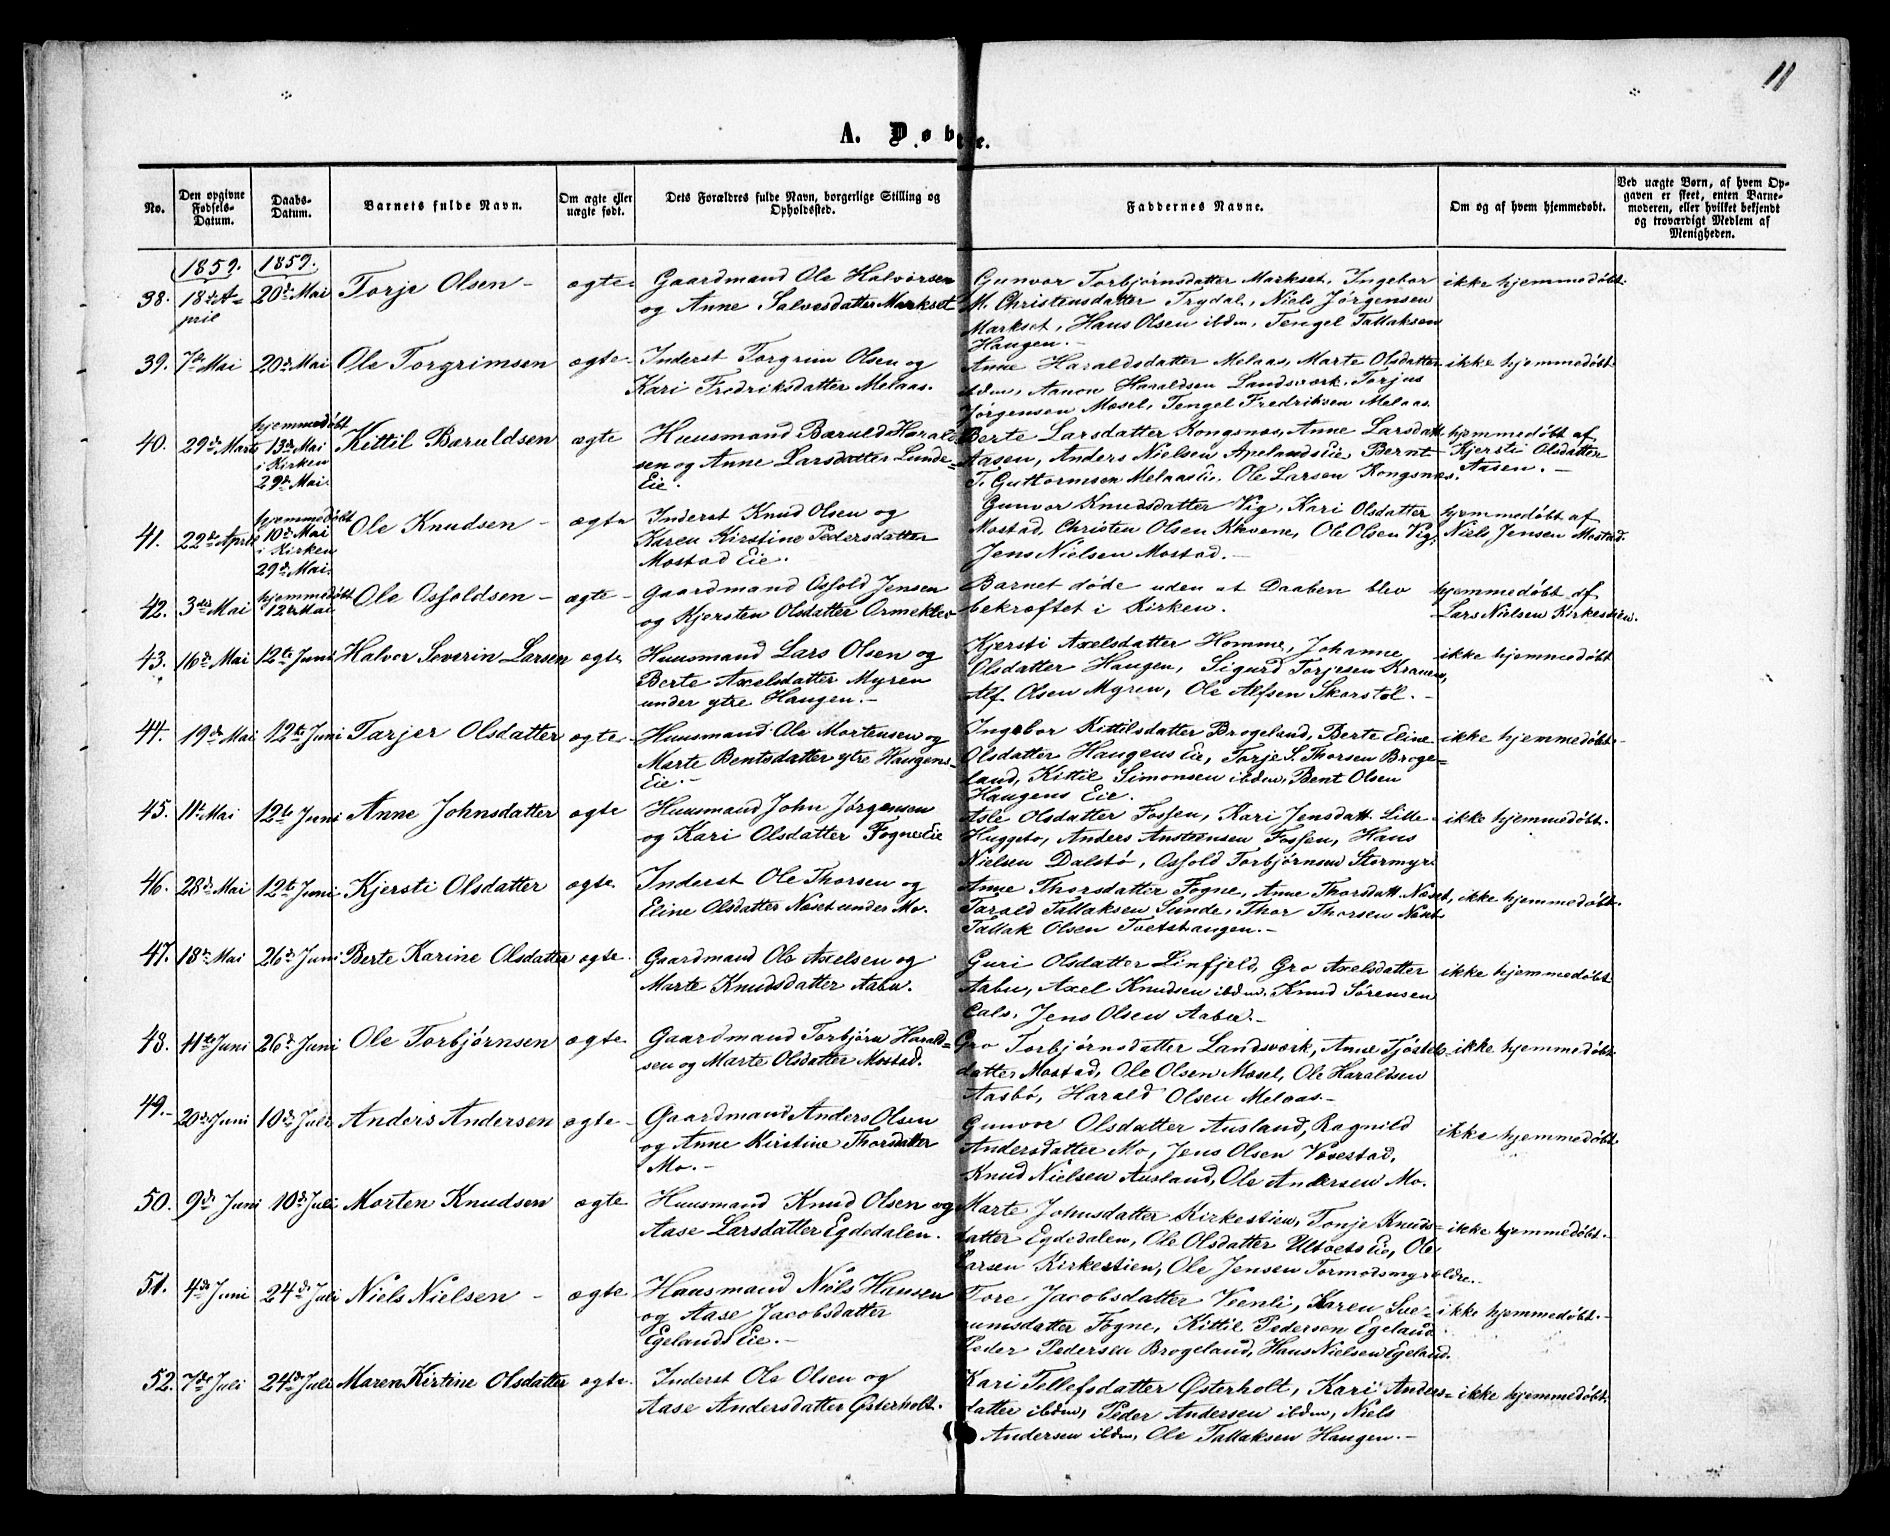 11
A. Døbte.
No.
Den opgivne Fødsels-Datum.
Daabs-Datum.
Barnets fulde Navn.
Om ægte eller uægte født.
Dets Forældres fulde Navn, borgerlige Stilling og Opholdssted.
Faddernes Navne.
Om og af hvem hjemmedøbt.
Ved uægte Børn, af hvem Opgaven er skeet, enten Barnemoderen, eller hvilket bekjendt og troværdigt Medlem af Menigheden.
1859. 1859.
38. 18de April 20de Mai Torje Olsen – ægte
Gaardmand Ole Halvorsen
og Anne Salvesdatter Markset
Gunvor Torbjørnsdatter Markset, Ingebor
M. Christensdatter Trydal, Niels Jørgensen
Markset, Hans Olsen ibdm, Tengel Tallaksen
Haugen. –
ikke hjemmedøbt.
39. 7de Mai 20de Mai Ole Torgrimsen ægte
Inderst Torgrim Olsen og
Kari Fredriksdatter Melaas.
Anne Haraldsdatter Melaas, Marte Olsdatter
ibdm, Aanon Haraldsen Landsværk, Torjus
Jørgensen Mosel, Tengel Fredriksen Melaas
ikke hjemmedøbt
40. 29de Marts hjemmedøbt
13de Mai
i Kirken
29de Mai.
Kittil Baruldsen ægte
Huusmand Baruld Harald
sen og Anne Larsdatter Lunde-
Eie.
Berte Larsdatter Kongsnæs, Anne Larsdatt.
Aasen, Anders Nielsen Apelands Eie, Bernt
T. Guttormsen Melaas Eie, Ole Larsen Kongsnæs.
hjemmedøbt af
Kjersti Olsdatter
Aasen. –
41. 22de April hjemmedøbt
10de Mai
i Kirken
29de Mai.
Ole Knudsen – ægte
Inderst Knud Olsen og
Karen Kirstine Pedersdatter
Mostad Eie.
Gunvor Knudsdatter Vig, Kari Olsdatter
Mostad, Christen Olsen Khvene, Ole Olsen Vig,
Jens Nielsen Mostad. –
hjemmedøbt af
Niels Jensen Mostad.
42. 3die Mai hjemmedøbt
12te Mai
Ole Osfoldsen – ægte –
Gaardmand Osfold Jensen
og Kjersten Olsdatter Ormeklev
Barnet døde uden at Daaben blev
bekræftet i Kirken.
hjemmedøbt af
Lars Nielsen Kirkestien.
43. 16de Mai 12te Juni Halvor Severin Larsen ægte
Huusmand Lars Olsen og
Berte Axelsdatter Myren
under ytre Haugen. –
Kjersti Axelsdatter Homme, Johanne
Olsdatter Haugen, Sigurd Torjesen
Alf Olsen Myren, Ole Alfsen Skorstøl. –
ikke hjemmedøbt
44. 19de Mai 12te Juni Tarjer Olsdatter ægte
Huusmand Ole Mortensen og
Marte Bentsdatter ytre Haugens-
Eie. –
Ingebor Kittilsdatter Brogeland, Berte Eline
Olsdatter Haugens Eie, Torje S. Thorsen Broge=
land, Kittil Simonsen ibdm, Bent Olsen
Haugens Eie.
ikke hjemmedøbt. –
45. 11te Mai 12te Juni Anne Johnsdatter ægte
Huusmand John Jørgensen
og Kari Olsdatter Fogne Eie
Asle Olsdatter Fossen, Kari Jensdatt. Lille-
Huggeto, Anders Anstensen Fossen, Hans
Nielsen Dalstø, Osfold Torbjørnsen Stormyr.
ikke hjemmedøbt.
46. 28de Mai 12te Juni Kjersti Olsdatter ægte
Inderst Ole Thorsen og
Eline Olsdatter Næset under Mo.
Anne Thorsdatter Fogne, Anne Thorsdatt. Næset,
Tarald Tallaksen Sunde, Thor Thorsen Næset
Tallak Olsen Tvetshaugen. –
ikke hjemmedøbt.
47. 18de Mai 26de Juni Berte Karine Olsdatter ægte.
Gaardmand Ole Axelsen og
Marte Knudsdatter Aabu.
Guri Olsdatter Linfjeld, Gro Axelsdatter
Aabu, Axel Knudsen ibdm, Knud Sørensen
Cals, Jens Olsen Aabu. –
ikke hjemmedøbt
48. 11te Juni 26de Juni Ole Torbjørnsen ægte
Gaardmand Torbjørn Harald=
sen og Marte Olsdatter Mostad.
Gro Torbjørnsdatter Landsværk, Anne Tjøstels-
datter Mostad, Ole Olsen Mosel, Ole Haraldsen
Aasbø, Harald Olsen Melaas. –
ikke hjemmedøbt.
49. – 20de Juni 10de Juli Anders Andersen ægte –
Gaardmand Anders Olsen
og Anne Kirstine Thorsdatter
Mo. –
Gunvor Olsdatter Ausland, Ragnild
Andersdatter Mo, Jens Olsen Vosestad,
Knud Nielsen Ausland, Ole Andersen Mo.
ikke hjemmedøbt.
50. 9de Juni 10de Juli Morten Knudsen ægte
Huusmand Knud Olsen og
Aase Larsdatter Egdedalen.
Marte Johnsdatter Kirkestien, Tonje Knuds=
datter Egdedalen, Ole Olsdatter Ultvets Eie, Ole
Larsen Kirkestien, Ole Jensen Tormodsmyr ældre.
ikke hjemmedøbt. –
51. 4de Juni 24de Juli Niels Nielsen – ægte
Huusmand Niels Hansen
og Aase Jacobsdatter
Egelands Eie. –
Tore Jacobsdatter Veenli, Karen Sve=
numsdatter Fogne, Kittil Pedersen Egeland
Peder Pedersen Brogeland, Hans Nielsen Egeland.
ikke hjemmedøbt. –
52. 7de Juli 24de Juli Maren Kirtine Olsdatter ægte.
Inderst Ole Olsen og
Aase Andersdatter Østerholt.
Kari Tellefsdatter Østerholt, Kari Anders=
datter ibdm, Peder Andersen ibdm, Niels
Andersen ibdm, Ole Tallaksen Haugen. –
ikke hjemmedøbt.